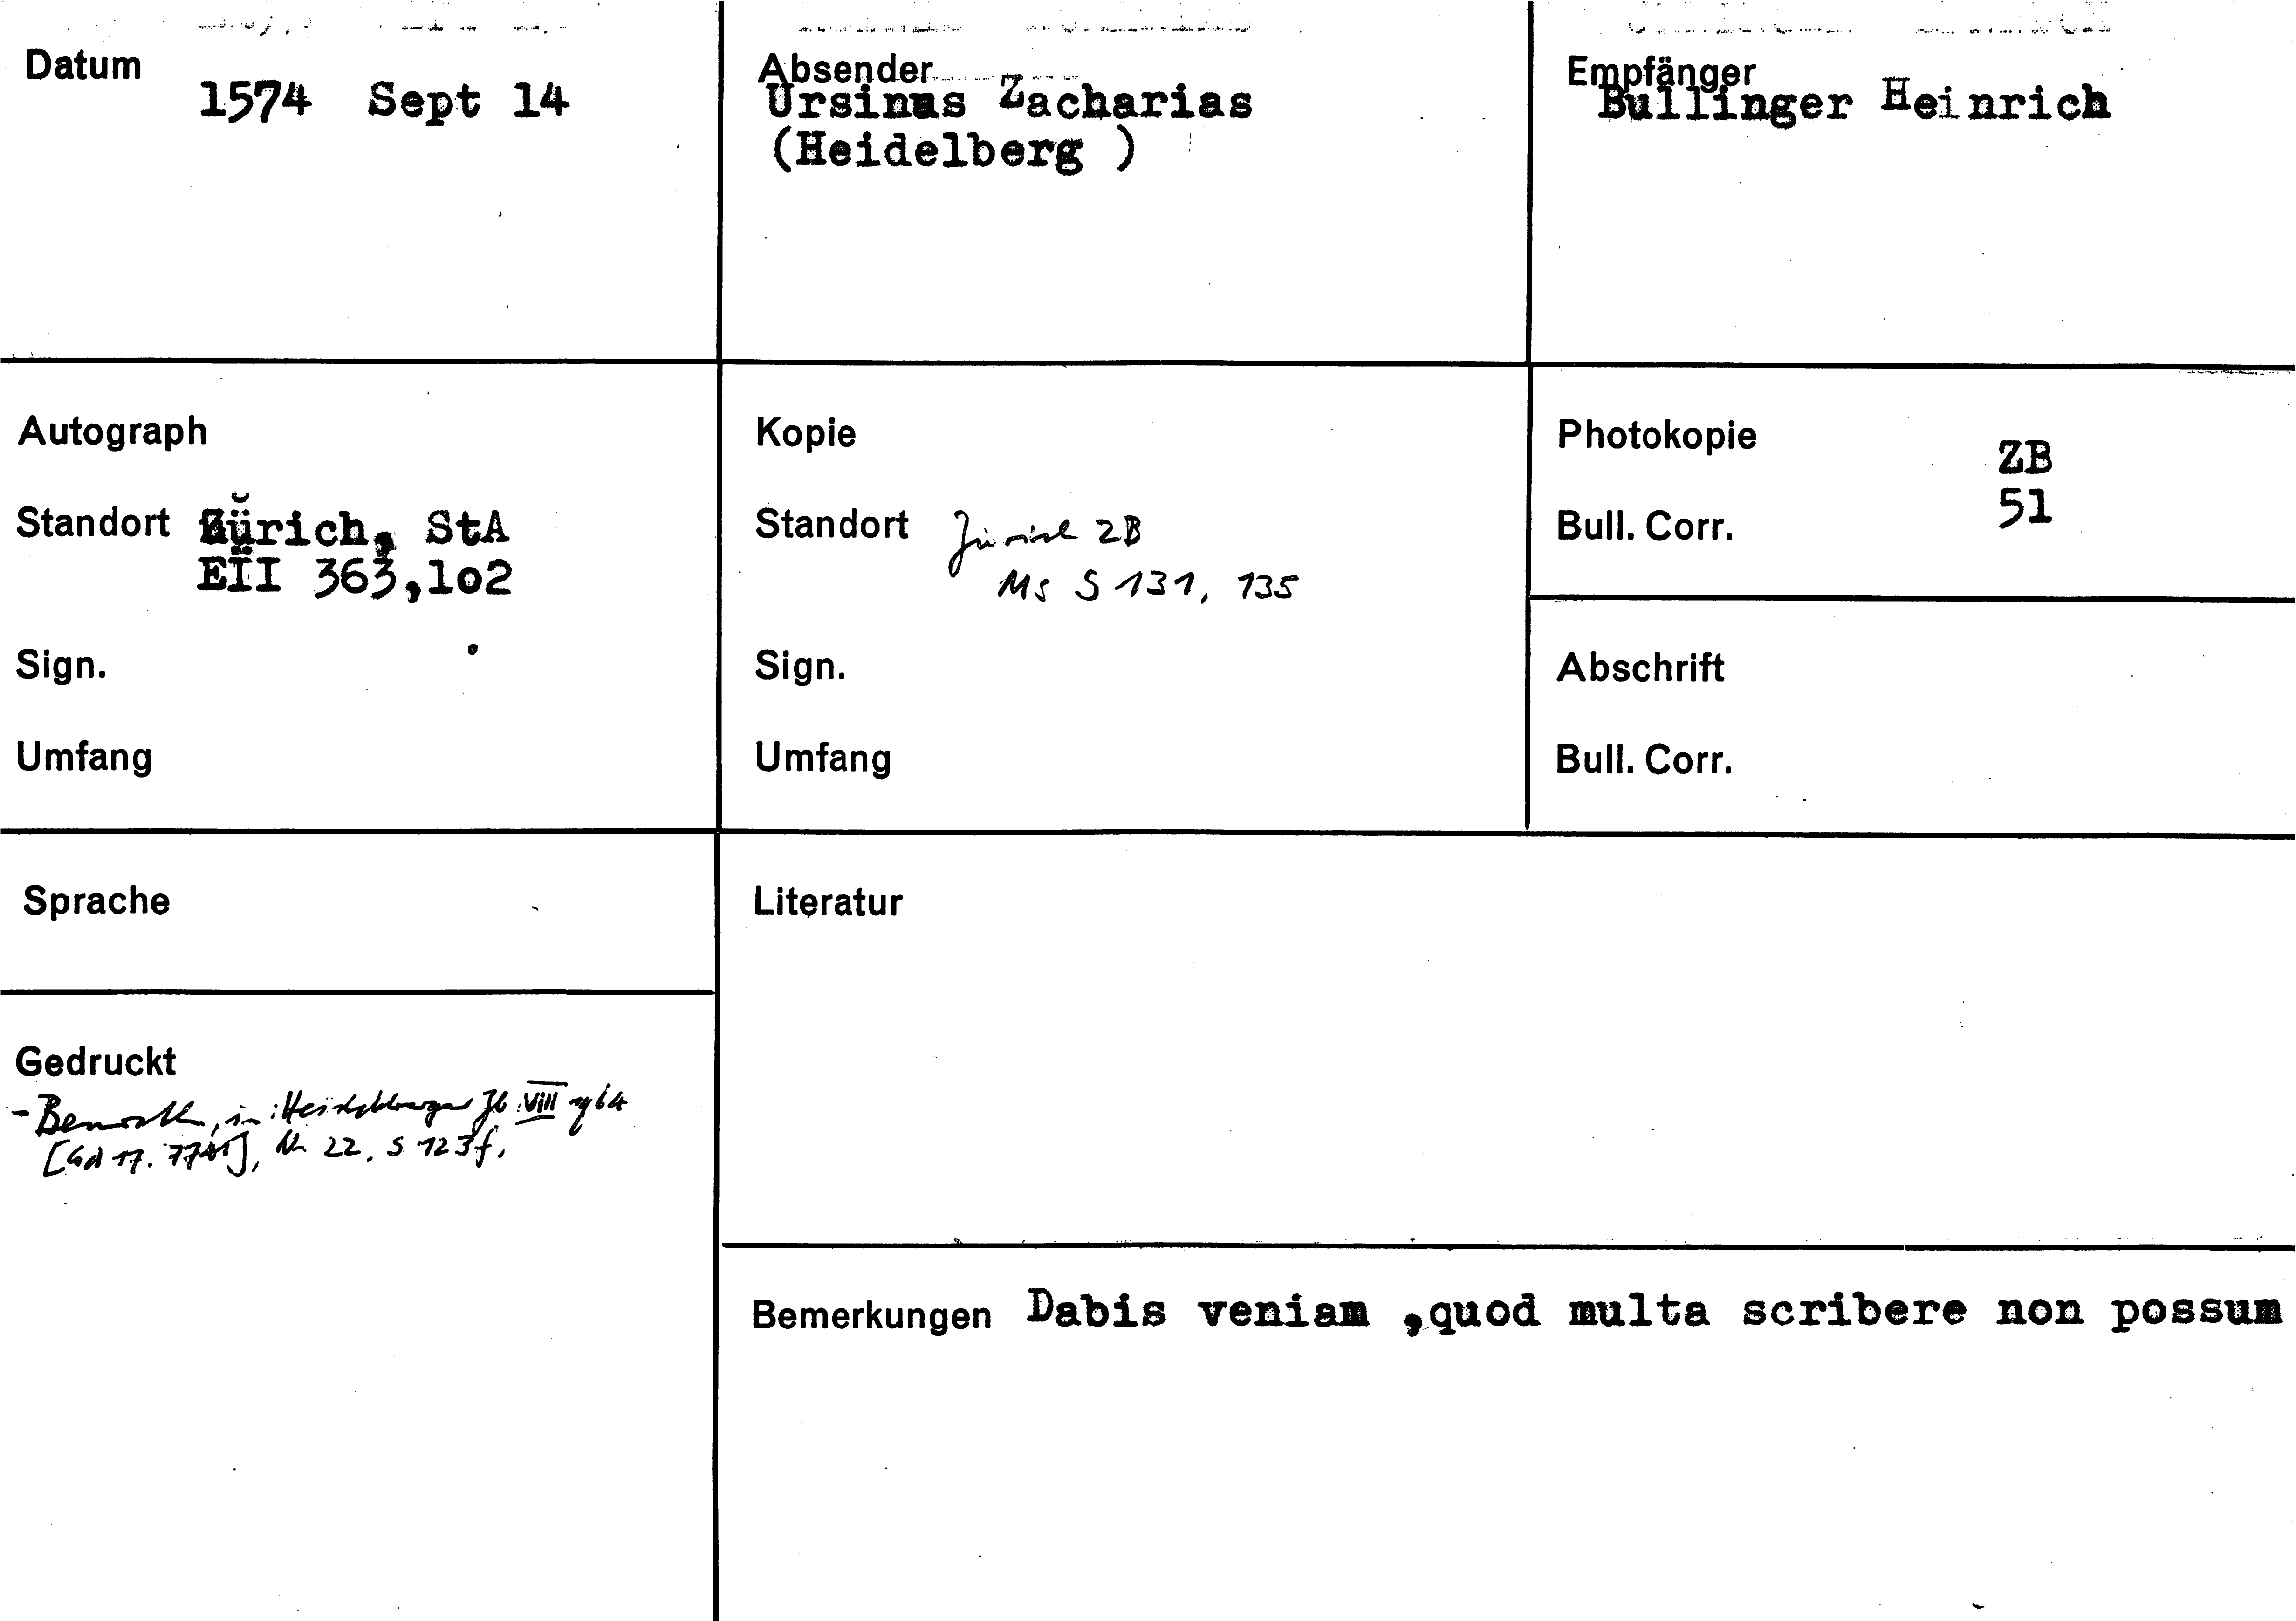 Datum
1574 Sept 14
Absender
Ursinus Zacharias
(Heidelberg )
Empfänger
Bullinger Heinrich
Autograph
Standort Zürich, StA
EII 363,1o2
Sign.
Umfang
Kopie
Standort Zürich ZB
Ms S 131, 135
Sign.
Umfang
Photokopie ZB
Bull. Corr. 51
Abschrift
Bull. Corr.
Sprache
Gedruckt
- Benrath, in: Heidelberger Jb VIII 1964
[Gd 17. ], Nr 22. S 123f.
Literatur
Bemerkungen Dabis veniam ,quod multa scribere non possum